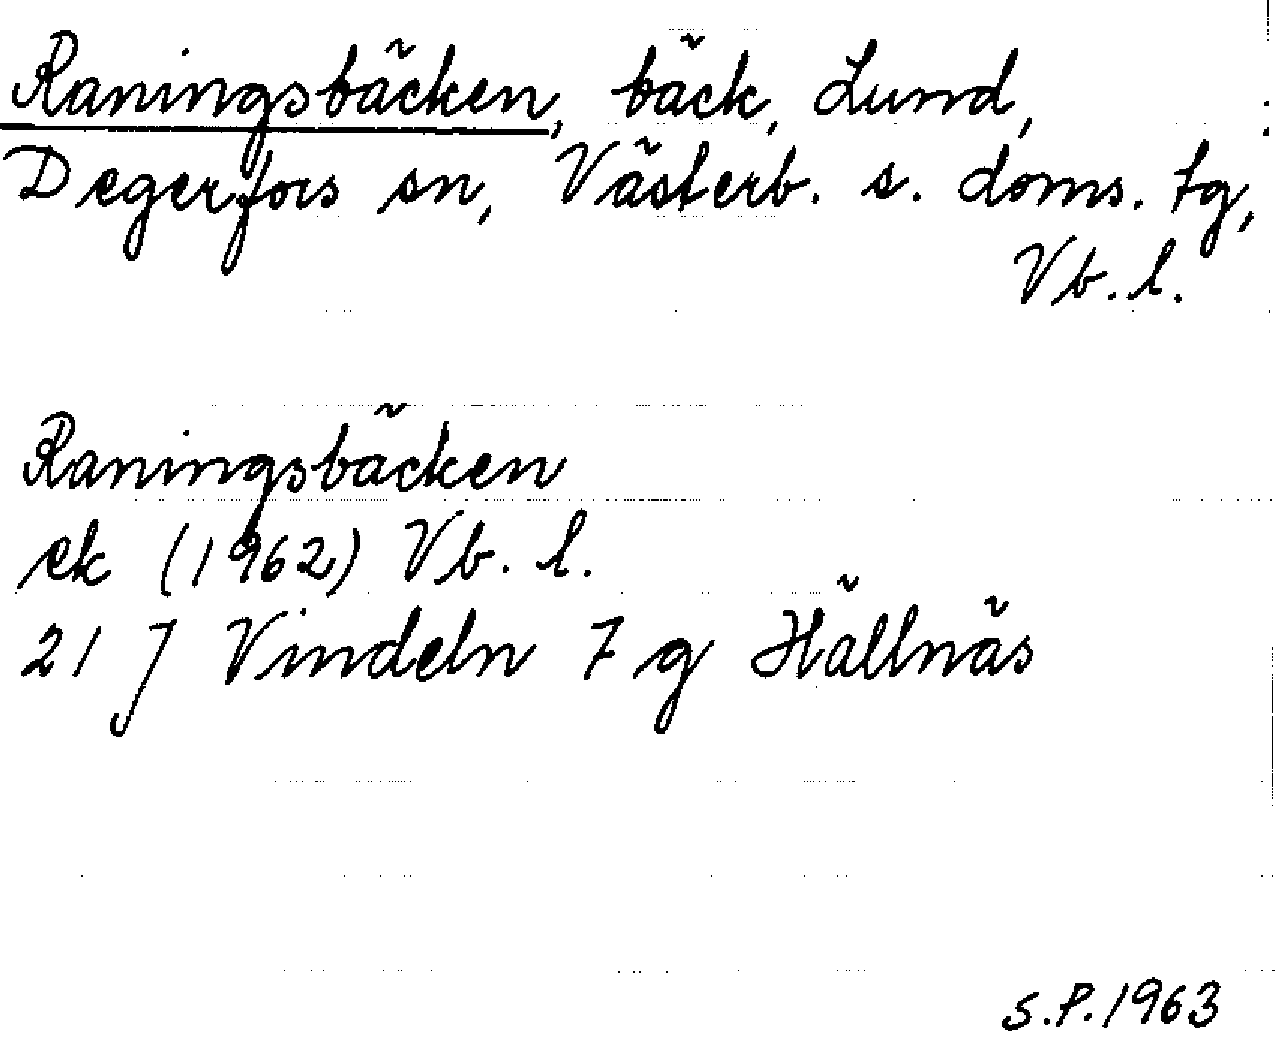 Raningsbäcken, bäck, Lund,
Degerfors sn, Västerb. s. doms. tg,
Vb. l.
Raningsbäcken
ek (1962) Vb. l.
21 J Vindeln 7 g Hällnäs
S.P. 1963